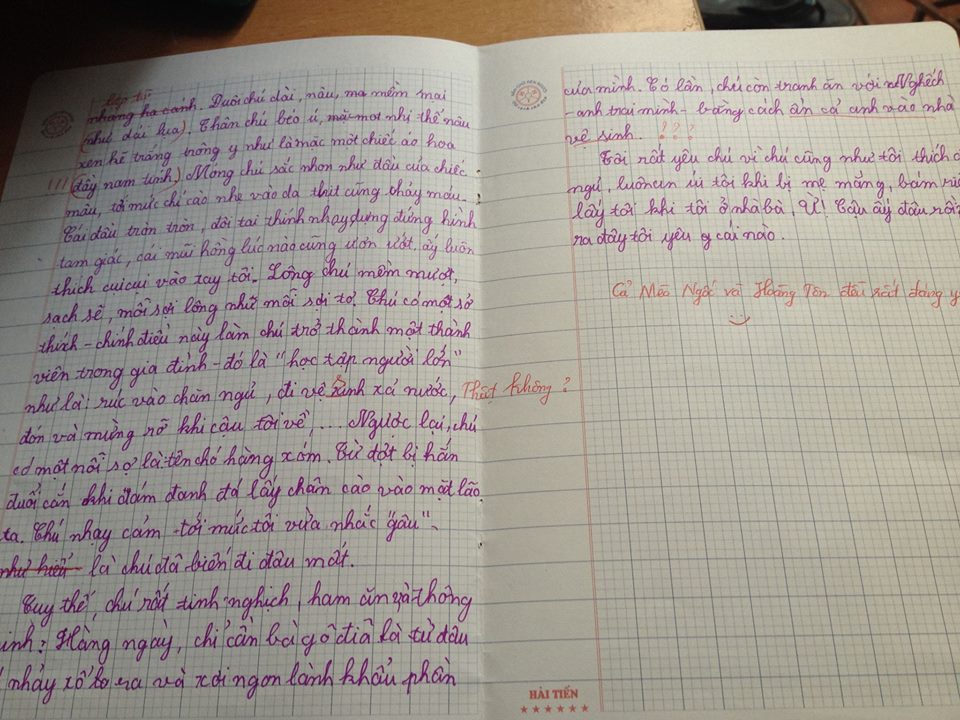 lập tức
nhảng ha cánh. Đuôi chú dài, nâu, ma mềm mại
(như dải lụa). Thân chú béo ú, mà mơ nhị thể nâu
xen kẽ trắng trông y như là mặc một chiếc áo hoa
!!! (đầy nam tính.) Móng chú sắc nhọn như dấu của chiếc
mâu, tới mức chỉ cào nhẹ vào da thịt cũng chảy máu.
Cái đầu tròn tròn, đôi tai thính nhạy, dựng đứng hình
tam giác, cái mũi hồng lúc nào cũng ươn ướt, ấy luôn
thích cụi cụi vào tay tôi. Lông chú mềm mượt,
sạch sẽ, mỗi sợi lông như mỗi sợi tơ. Chú có một sở
thích - chính điều này làm chú trở thành một thành
viên trong gia đình - đó là "học tập người lớn"
như là: rúc vào chăn ngủ, đi vệ sinh xả nước, Thật không?
đón và mừng rỡ khi cậu tôi về,... Ngược lại, chú
có một nỗi sợ là tên chó hàng xóm. Từ đợt bị hắn
đuổi cắn khi dám đanh đá lấy chân cào vào mặt lão
ta. Chú nhạy cảm tới mức tôi vừa nhắc "gâu"
như hiểu là chú đã biến đi đâu mất.
Tuy thế, chú rất tinh nghịch, ham ăn và thông
inh: Hàng ngày, chỉ cần bà gõ đĩa là từ đâu
nhảy xổ to ra và xơi ngon lành khẩu phần
HẢI TIẾN
của mình. Có lần, chú còn tranh ăn với Nghếch
- anh trai mình - bằng cách ẩn cả anh vào nhà
vệ sinh. ???
Tôi rất yêu chú vì chú cũng như tôi thích
ngủ, luôn an ủi tôi khi bị mẹ mắng, bám
lấy tôi khi tôi ở nhà bà, Ử! Cậu ấy đâu rồi
ra đây tôi yêu cái nào.
Cả Mèo Ngốc và Hoàng Tôn đều rất đáng y